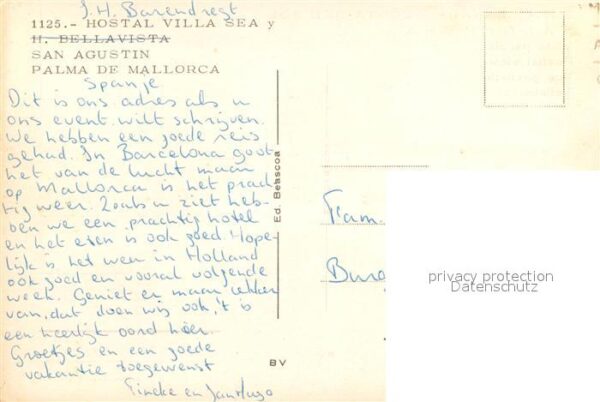 J.H. Barendregt
1125.- HOSTAL VILLA SEA y
H. BELLAVISTA
SAN AGUSTIN
PALMA DE MALLORCA
Spanje
Dit is ons adres als u
ons event. wilt schrijven.
We hebben een goede reis
gehad. In Barcelona goot
het van de lucht maar
op Mallorca is het prach
tig weer. Zoals u ziet heb-
ben we een prachtig hotel
en het eten is ook goed. Hope-
lijk is het weer in Holland
ook goed en vooral volgende
week. Geniet er maar lekker
van, dat doen wij ook, 't is
een heerlijk oord hier.
Groetjes en een goede
vakantie toegewenst
Tineke en Jan Hugo
Ed. Belascoa
BV
Fam.
privacy protection
Datenschutz